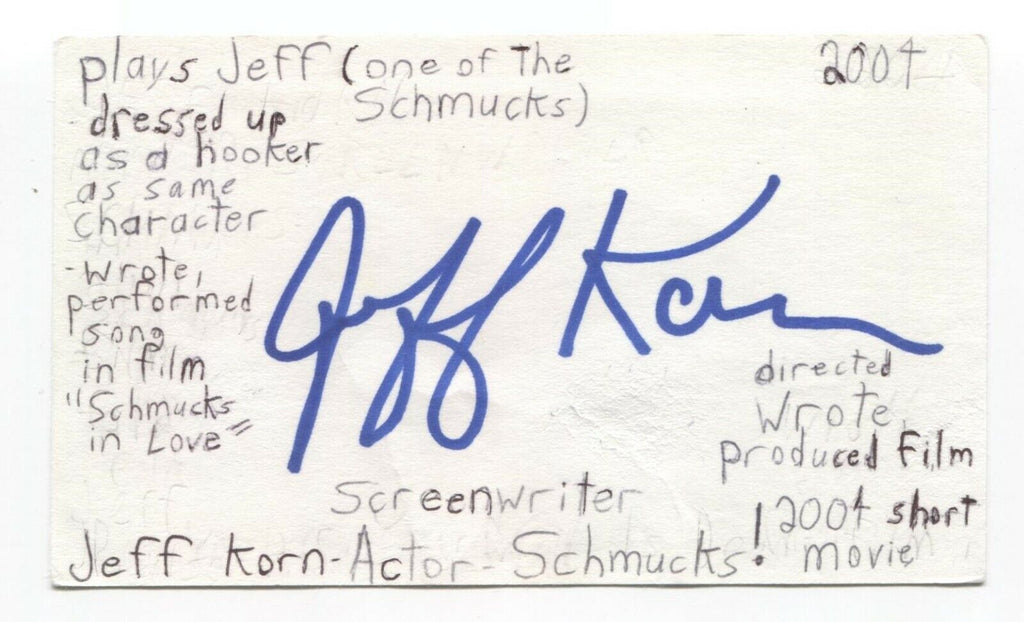 plays Jeff (one of The
Schmucks)
2004
dressed up
as a hooker
as same
character
-wrote,
performed
song
in film
"Schmucks
in Love"
Jeff Korn
directed
wrote,
produced film
Screenwriter
2004 short
movie
Jeff Korn-Actor-Schmucks!